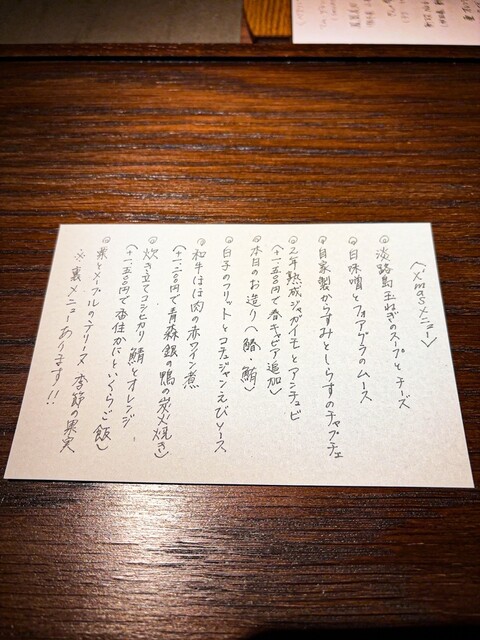 〈X'masメニュー〉
◎淡路島玉ねぎのスープとチーズ
◎白味噌とフォアグラのムース
◎自家製からすみとしらすのチャプチェ
◎2年熟成ジャガイモとアンチョビ
(+一、五〇〇円で春キャビア追加)
◎本日のお造り(鰆・鮪)
◎白子のフリットとコチュジャンえびソース
◎和牛ほほ肉の赤ワイン煮
(+一、二〇〇円で青森銀の鴨の炭火焼き)
◎炊き立てコシヒカリ 鯖とオレンジ
(+一、五〇〇円で香住かにといくらご飯)
◎とメープルのデリース 季節の果実
※裏メニューあります!!